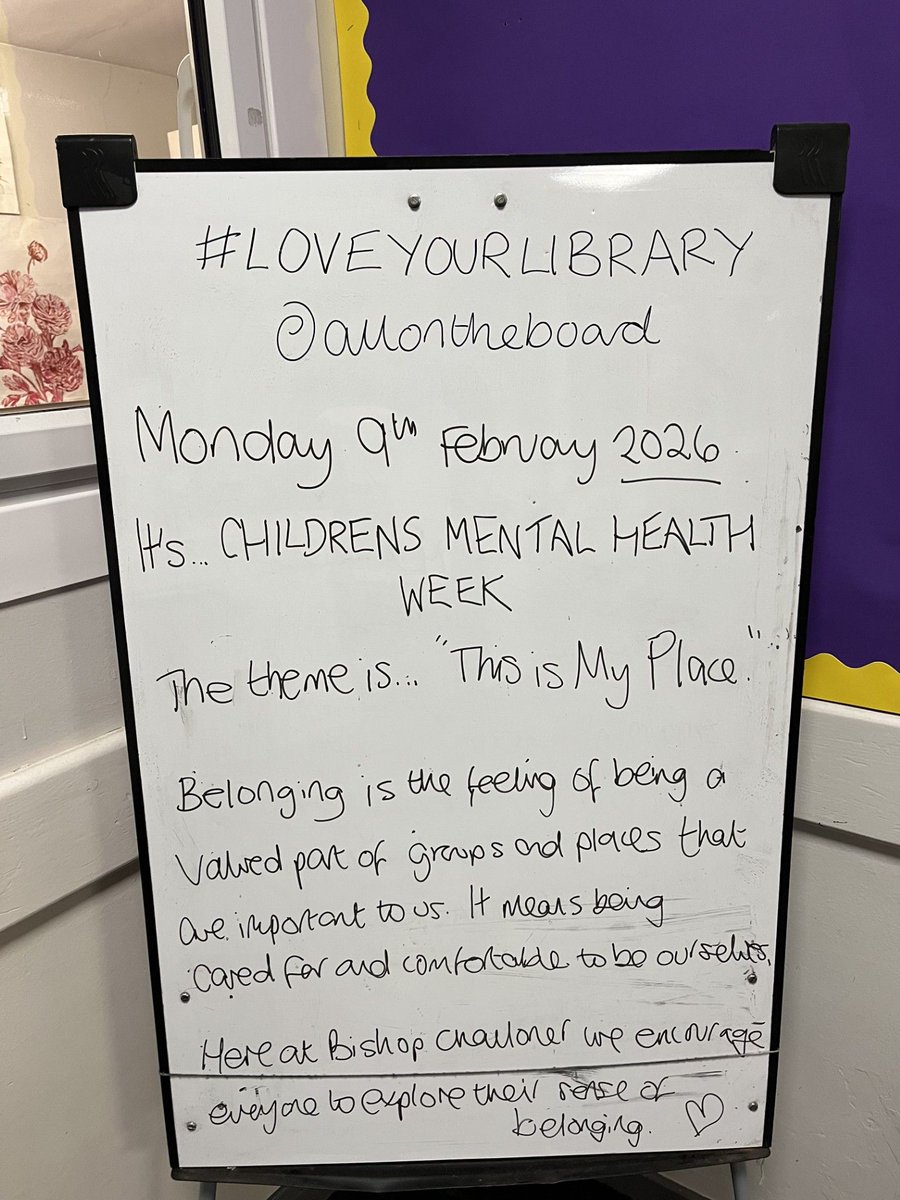 #LOVEYOURLIBRARY
@allontheboard
Monday 9th February 2026.
It's... CHILDRENS MENTAL HEALTH
WEEK
The theme is... "This is My Place."
Belonging is the feeling of being a
valued part of groups and places that
are important to us. It means being
cared for and comfortable to be ourselves.
Here at Bishop Challoner we encourage
everyone to explore their sense of
belonging. ♡